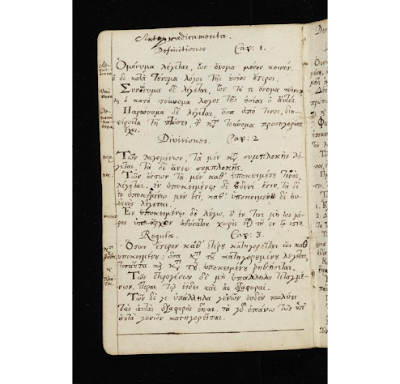 Antepradicamenta.
Definitiones Cap: 1.
Ὁμώνυμα λέγεται, ὧν ὄνομα μόνον κοινόν,
ὁ δὲ κατὰ τοὔνομα λόγος τῆς οὐσίας ἕτερος.
Συνώνυμα δὲ λέγεται, ὧν τό τι ὄνομα κοινὸν,
ὁ κατὰ τοὔνομα λόγος τῆς οὐσίας ὁ αὐτός.
Παρώνυμα δὲ λέγεται, ὅσα ἀπό τινος, δια-
φέροντα τῇ πτώσει τὴν κτ τοὔνομα προσηγορίαν
ἔχει.
Divisiones. Cap: 2
Τῶν λεγομένων, τὰ μὲν κτ συμπλοκὴν λέ-
γεται, τὰ δὲ ἄνευ συμπλοκῆς.
Τῶν ὄντων τὰ μὲν καθ' ὑποκειμένου τινὸς
λέγεται, ἐν ὑποκειμένῳ δὲ οὐδενί ἐστιν, τὰ δὲ
ἐν ὑποκειμένῳ μέν ἐστι, καθ' ὑποκειμένου δὲ οὐ-
δενὸς λέγεται.
Ἐν ὑποκειμένῳ δὲ λέγω, ὃ ἔν τινι μὴ ὡς μέ-
ρος ὑπάρχον ἀδύνατον χωρὶς τοῦ ἐν ᾧ ἐστιν
Regulæ. Cap: 3.
Ὅταν ἕτερον καθ' ἑτέρου κατηγορεῖται ὡς καθ'
ὑποκειμένου: ὅσα κτ τοῦ κατηγορουμένου λέγεται,
τοσαῦτα καὶ κτ τοῦ ὑποκειμένου ῥηθήσεται.
Τῶν ἑτερογενῶν καὶ μὴ ὑπάλληλα τεταγμέ-
νων, ἕτεραι τῷ εἴδει καὶ αἱ διαφοραί.
Τῶν δέ γε ὑπάλληλα γενῶν οὐδὲν κωλύει
τὰς αὐτὰς διαφορὰς εἶναι. τὰ γὰρ ἐπάνω τῶν ὑπ'
αὐτὰ γενῶν κατηγορεῖται.